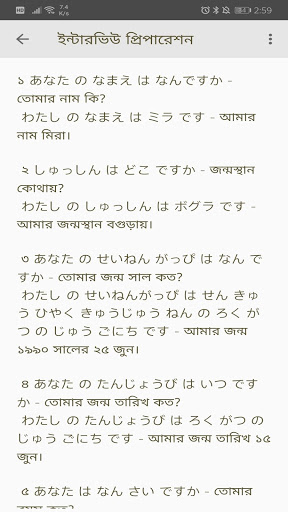 HD 4G 7.4 K/s 2:59
ইন্টারভিউ প্রিপারেশন
১ あなた の なまえ は なんですか -
তোমার নাম কি?
わたし の なまえ は ミラ です - আমার
নাম মিরা।
২ しゅっしん は どこ ですか - জন্মস্থান
কোথায়?
わたし の しゅっしん は ボグラ です -
আমার জন্মস্থান বগুড়ায়।
৩ あなた の せいねん がっぴ は なん で
すか - তোমার জন্ম সাল কত?
わたし の せいねんがっぴ は せん きゅ
う ひやく きゅうじゅう ねん の ろく が
つ の じゅう ごにち です - আমার জন্ম
১৯৯০ সালের ২৫ জুন।
৪ あなた の たんじょうび は いつ です
か - তোমার জন্ম তারিখ কত?
わたし の たんじょうび は ろく がつ の
じゅう ごにち です - আমার জন্ম তারিখ ১৫
জুন।
৫ あなた は なん さい ですか - তোমার